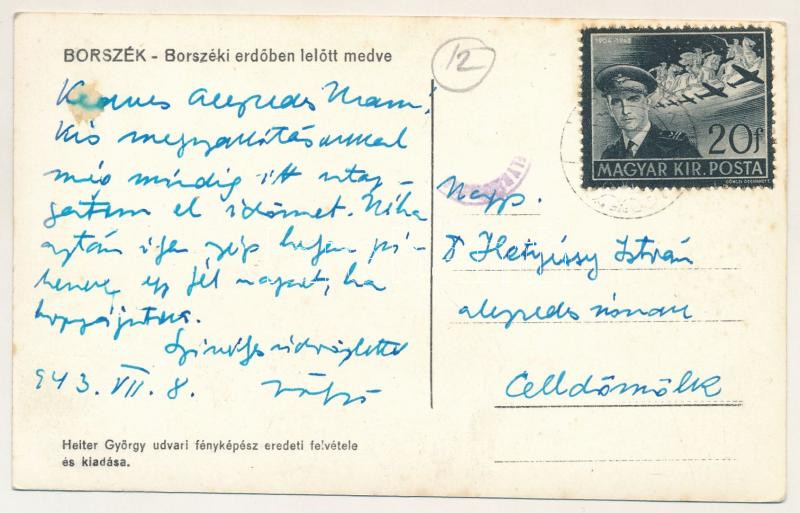 BORSZÉK - Borszéki erdőben lelőtt medve
12
1904-1942
20f
MAGYAR KIR. POSTA
Kedves Alezredes Uram!
Kis megszakításokkal
még mindig itt
el időmet. Néha
aztán igen szép helyen pi-
henek egy fél napot, ha
hozzájutok.
Szívélyes üdvözlettel
943. VII. 8.
Nagys.
Hetyéssy István
alezredes úrnak
Celldömölk
Heiter György udvari fényképész eredeti felvétele
és kiadása.